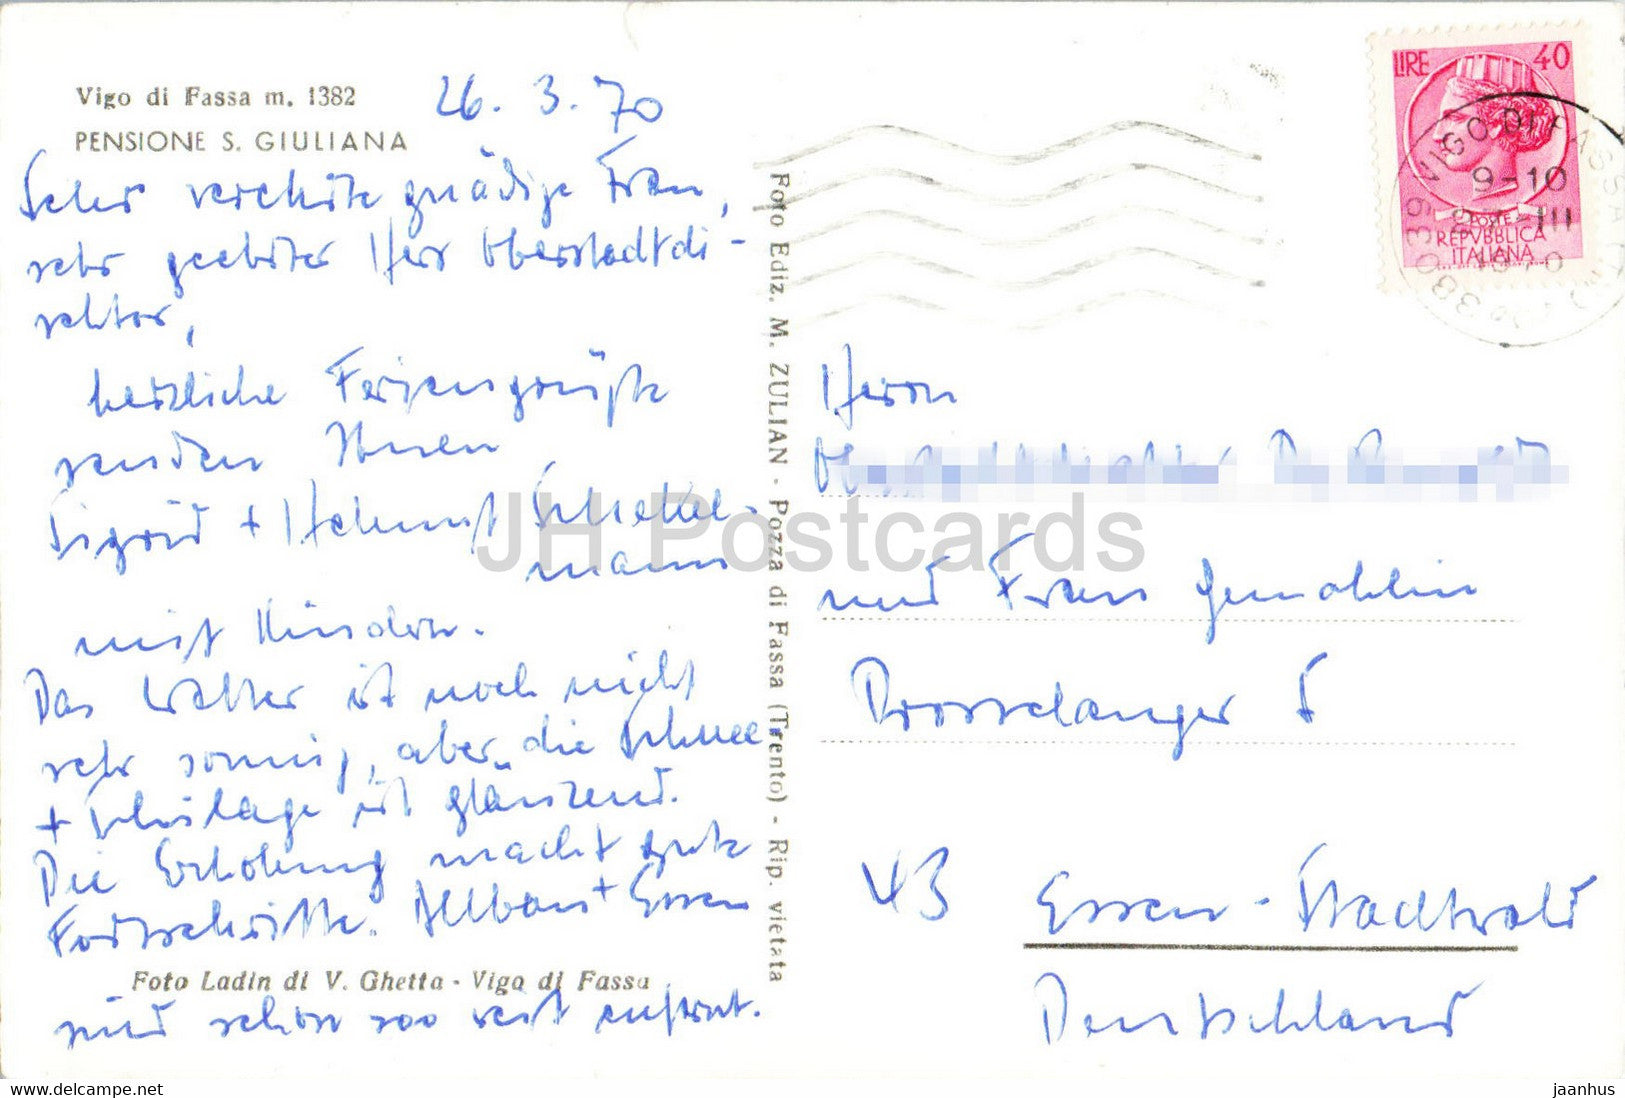 Vigo di Fassa m. 1382
PENSIONE S. GIULIANA
26. 3. 70
Sehr verehrte gnädige Frau,
sehr geehrter Herr Oberstadtdi-
rektor,
herzliche Feriensgrüße
senden Ihnen
Sigrid + Helmut Schekel-
mann
mit Kindern.
Das Wetter ist noch nicht
sehr sonnig, aber die Schnee
+ Skilage ist glänzend.
Die Erholung macht gute
Fortschritte. Altbau + Essen
sind schon soo weit entfernt.
Foto Ladin di V. Ghetta - Vigo di Fassa
Foto Ediz. M. ZULIAN - Pozza di Fassa (Trento) - Rip. vietata
LIRE 40
POSTE
REPVBBLICA
ITALIANA
VIGO DI FASSA
9-10
III
1970
38039
Herrn
und Frau Gemahlin
Drosselanger 5
43 Essen-Stadtwald
Deutschland
JH Postcards
www.delcampe.net
jaanhus